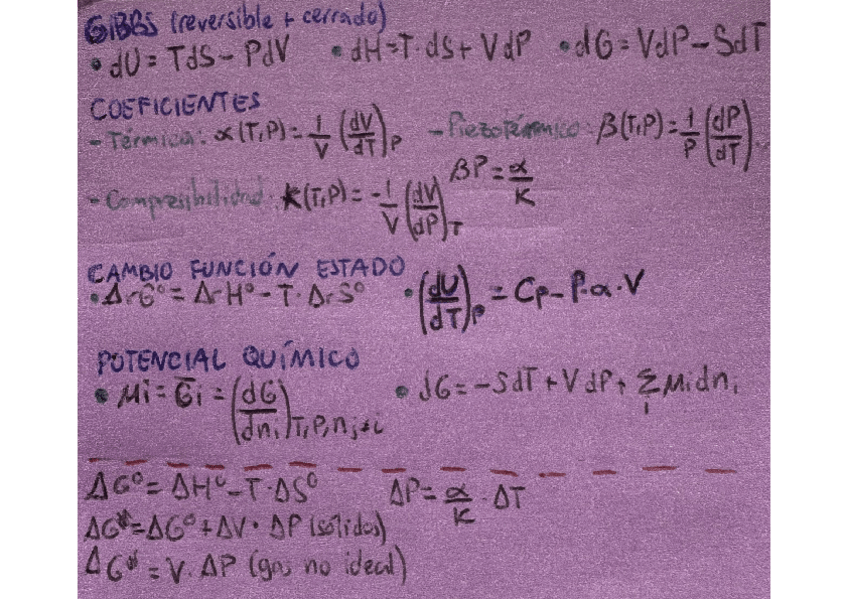 GIBBS (reversible + cerrado)
• dU = TdS - PdV • dH = T·dS + VdP • dG = VdP - SdT
COEFICIENTES
- Térmica: α(T,P) = 1/V (dV/dT)P - Piezotérmico: β(T,P) = 1/P (dP/dT)
βP = α/K
- Compresibilidad: K(T,P) = -1/V (dV/dP)T
CAMBIO FUNCIÓN ESTADO
• ΔrG° = ΔrH° - T·ΔrS° • (dU/dT)P = CP - P·α·V
POTENCIAL QUÍMICO
• Mi = G̅i = (dG/dni)T,P,nj≠i • dG = -SdT + VdP + Σi Midni
ΔG° = ΔH° - T·ΔS° ΔP = α/K · ΔT
ΔG* = ΔG° + ΔV·ΔP (sólidos)
ΔG* = V·ΔP (gas no ideal)